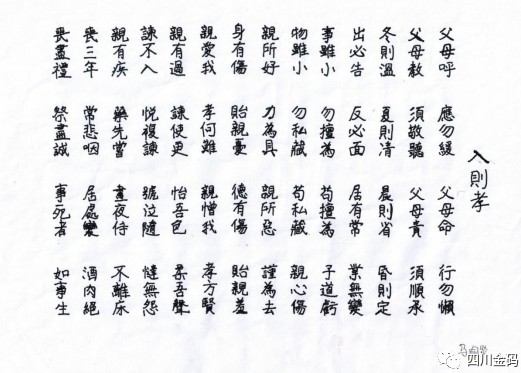 入則孝
父母呼 應勿緩 父母命 行勿懶
父母教 須敬聽 父母責 須順承
冬則溫 夏則清 晨則省 昏則定
出必告 反必面 居有常 業無變
事雖小 勿擅為 苟擅為 子道虧
物雖小 勿私藏 苟私藏 親心傷
親所好 力為具 親所惡 謹為去
身有傷 貽親憂 德有傷 貽親羞
親愛我 孝何難 親憎我 孝方賢
親有過 諫使更 怡吾色 柔吾聲
諫不入 悅複諫 號泣隨 撻無怨
親有疾 藥先嘗 晝夜侍 不離床
喪三年 常悲咽 居處變 酒肉絕
喪盡禮 祭盡誠 事死者 如事生
四川金码